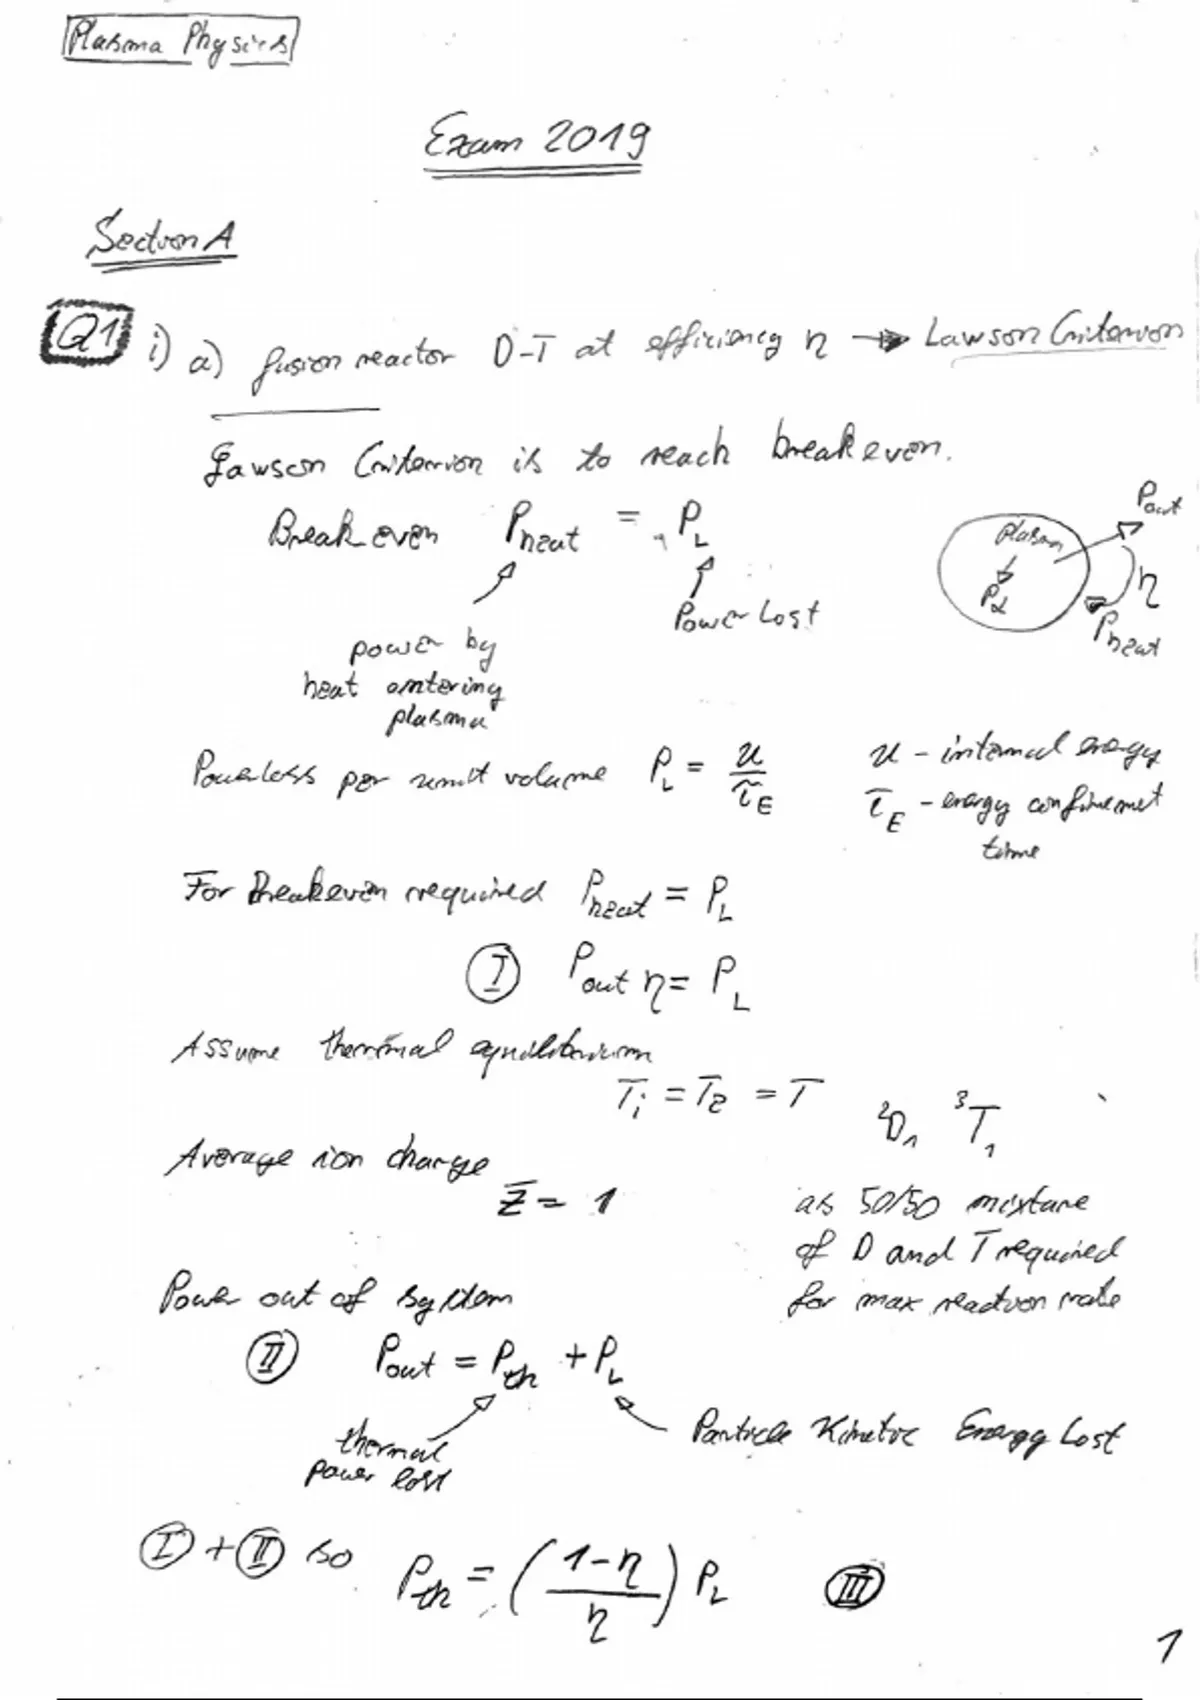 Plasma Physics
Exam 2019
Section A
Q1 i) a) fusion reactor D-T at efficiency η → Lawson Criterion
Lawson Criterion is to reach breakeven.
Breakeven P_heat = P_L
Power Lost
power by
heat entering
plasma
Plasma
P_α
P_out
η
P_heat
Power loss per unit volume P_L = u/τ_E
u - internal energy
τ_E - energy confinemet
time
For Breakeven required P_heat = P_L
Ⓘ P_out η = P_L
Assume thermal equilibrium
T_i = T_e = T
²D₁ ³T₁
Average ion charge
Z̄ = 1
as 50/50 mixture
of D and T required
for max reaction rate
Power out of system
Ⅱ P_out = P_th + P_L
thermal
power lost
Particle Kinetic Energy Lost
Ⓘ + Ⅱ so P_th = ((1-η)/η) P_L Ⅲ
1